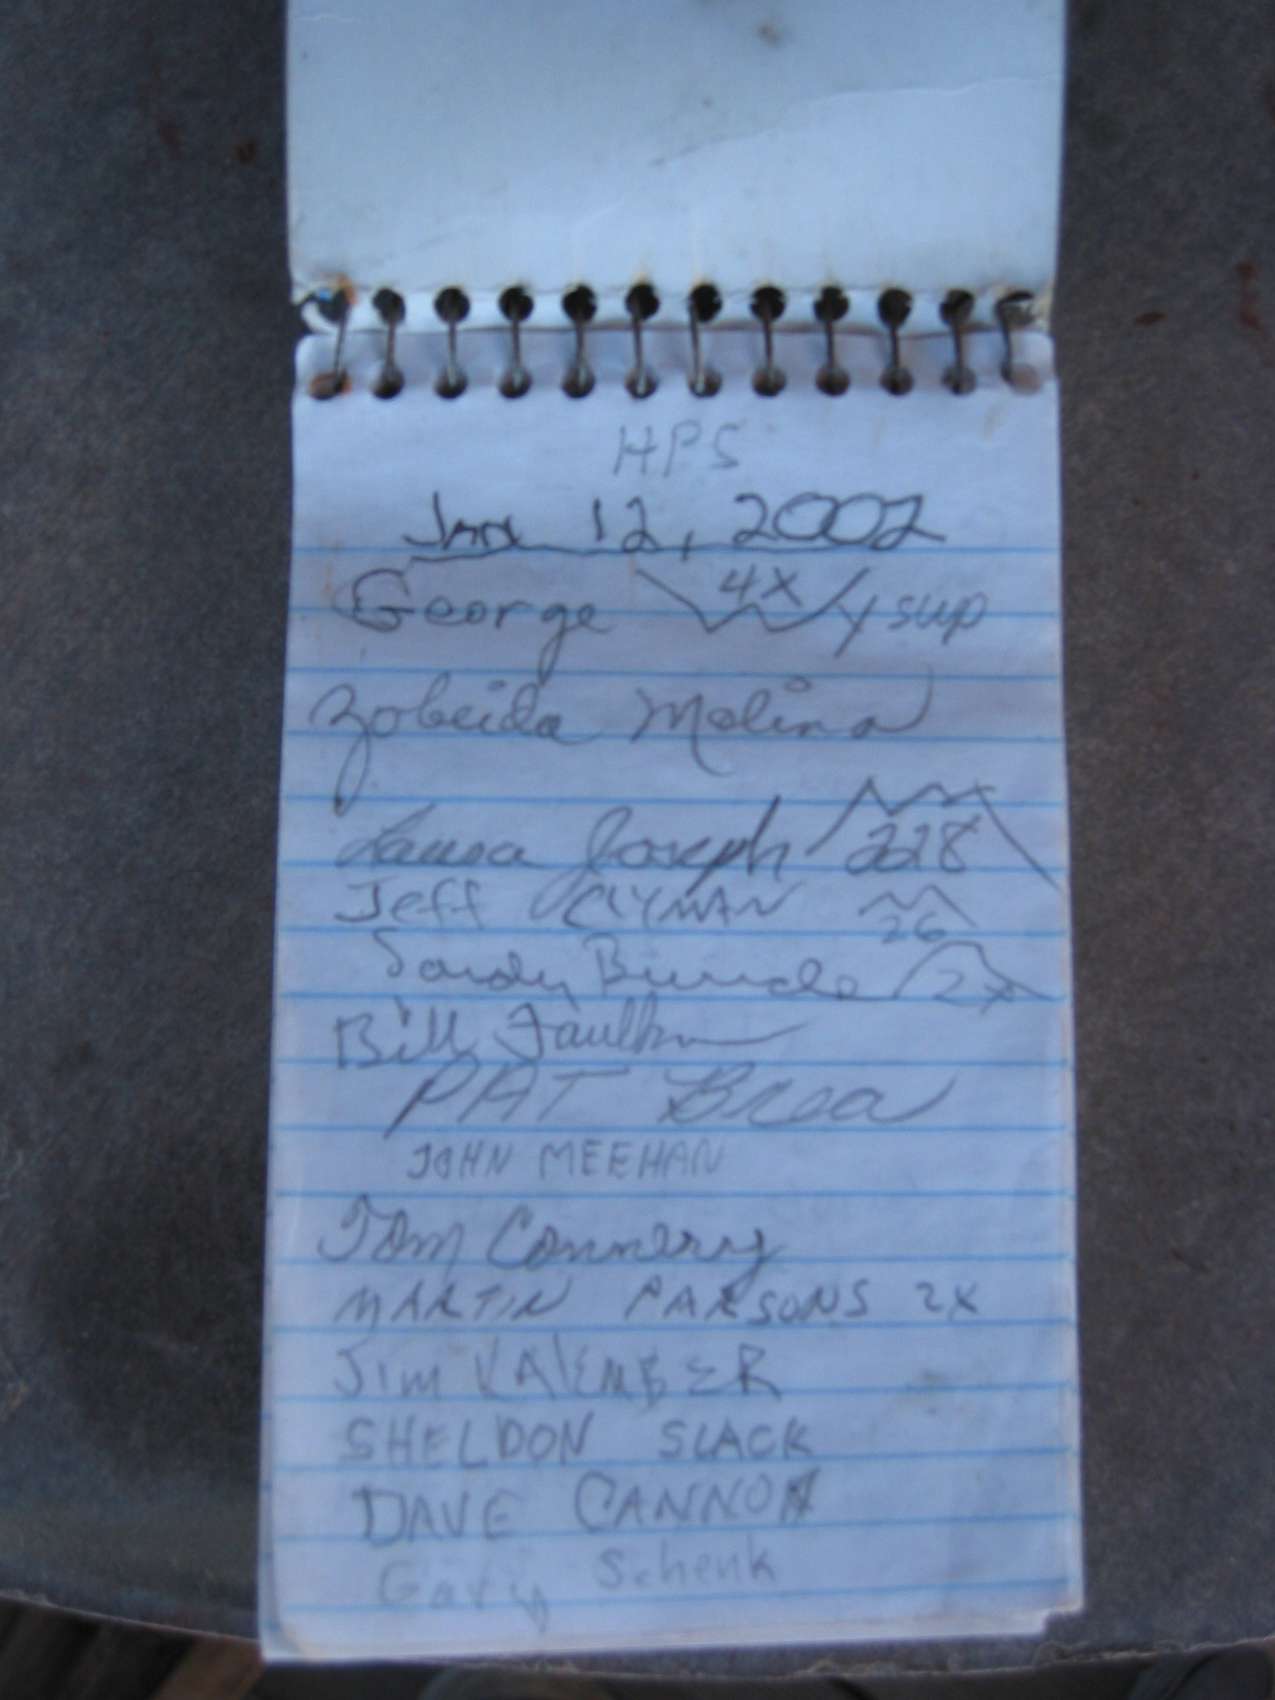 HPS
Jan 12, 2002
George 4X Wysup
Zobeida Molina
Laura Joseph 228
Jeff CLYMAN 26
Sandy Burnside 2x
Bill Faulkner
PAT Brea
JOHN MEEHAN
Tom Connery
MARTIN PARSONS 2X
Jim
SHELDON SLACK
DAVE CANNON
Gary Schenk